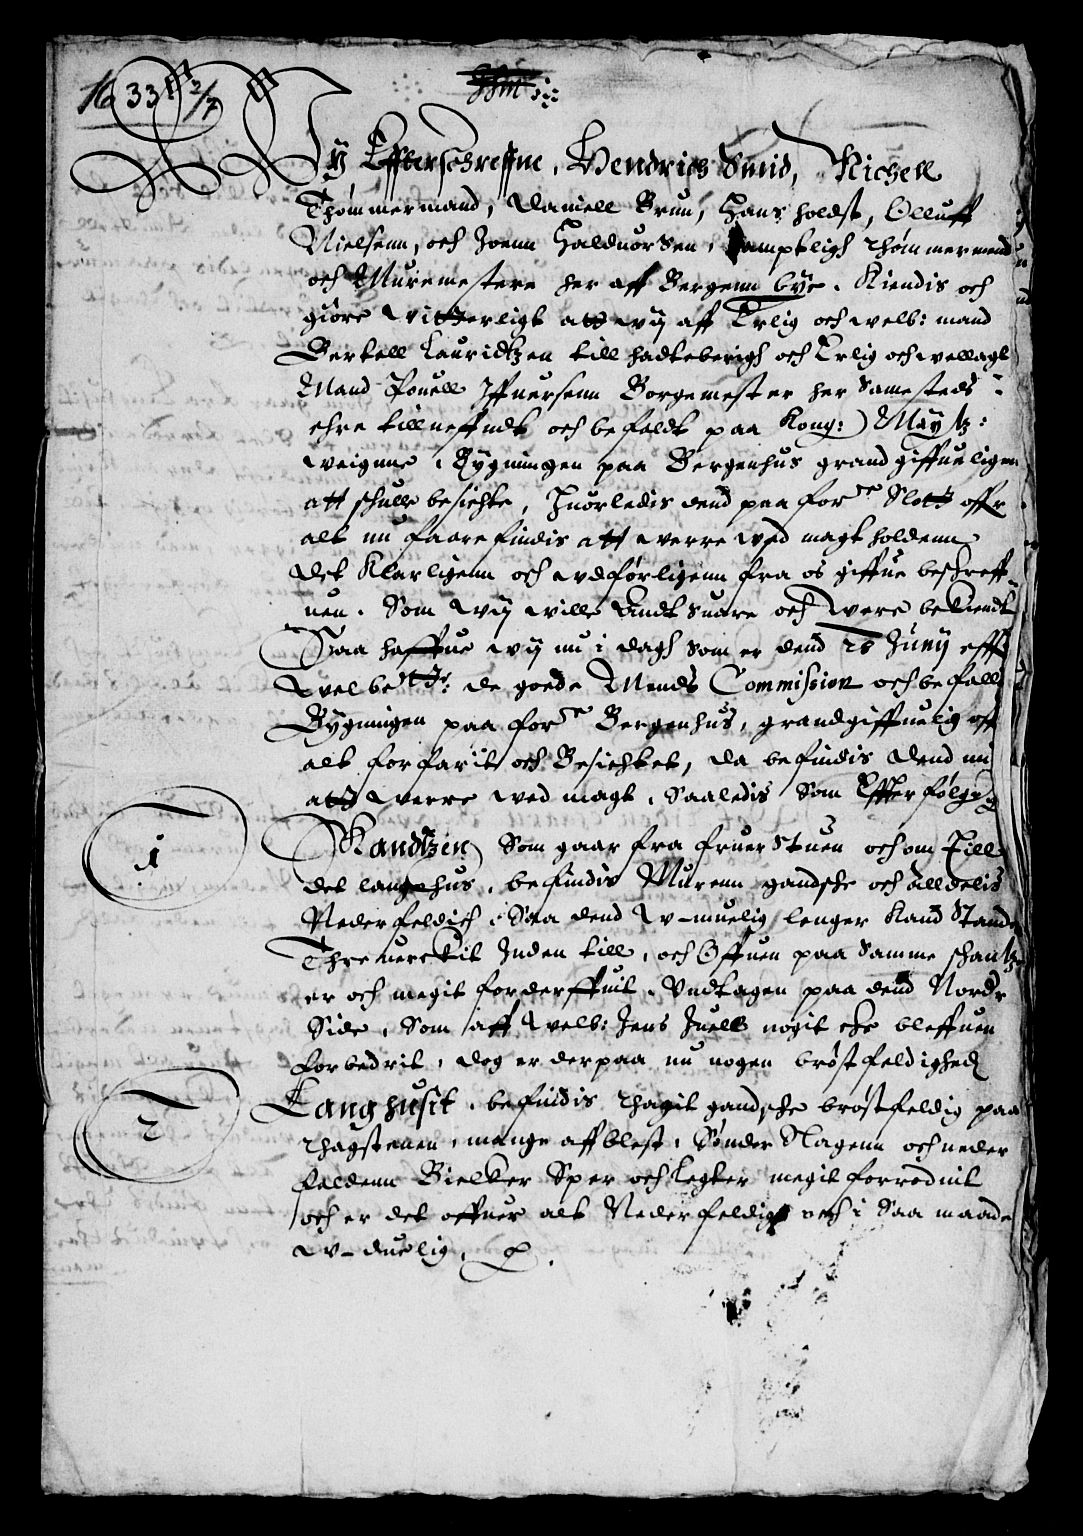 1633 2/7
Wy Effterschreffne, Hendrich Smid, Michell
Thømmermand, Daniell Brun, Hans holdst, Olluff
Nielsenn, och Joenn Halduorsen, samptligh Thømmermend
och Muremestere her aff Bergenn bye. Kiendis och
giøre witterligt att wy aff Erlig och welb: mand
Bertell Lauridtzen till hadteberigh och Erlig och wellagt
Mand Pouell Iffuersenn Borgemester her Samesteds
ehre tillneffndt och befaldt paa Kong: Maytz:
weignne, Bygningen paa Bergenhus grandgiffueligen
att schulle besichte, Huorledis dend paa forne Slott offr
alt nu faarefindis att werre wed magt holdenn
Det Klarligenn och wdførligenn fra os giffue beschreff
uen. Som wy wille Andtsuare och were bekiendt
Saa haffue wy nu i dagh som er dend 26 Juny efftr
welbetr: de goede Mends Commission och befall
Bygningen paa forne Bergenhus, grandgiffuelig off
alt forfarit och Besichtet, da befindis dend nu
att werre wed magt, Saaledis Som Effterfølg
1 Skandtzen Som gaar fra fruerstuen och om Till
det langehus, befindis Murenn gandsche och alldelis
Nederfeldich, Saa dend w-muelig lenger Kand Stande
Threuerckit Inden till, och Offuen paa Samme schantz
er och megit forderffuit, Vndtagen paa dend Nordr
Side, Som aff welb: Jens Juell nogit ehr bleffuen
forbedrit, dog er derpaa nu nogen brøstfeldighed
2 Langhusit, befindis Thagit gandsche brøstfeldig paa
Thagstenen, mange affblest, Sønder Slagenn och neder
faldenn Bielker Sper och Legter megit forrodnit
och er det offuer alt Nederfeldig och i Saa maade
w-duelig,